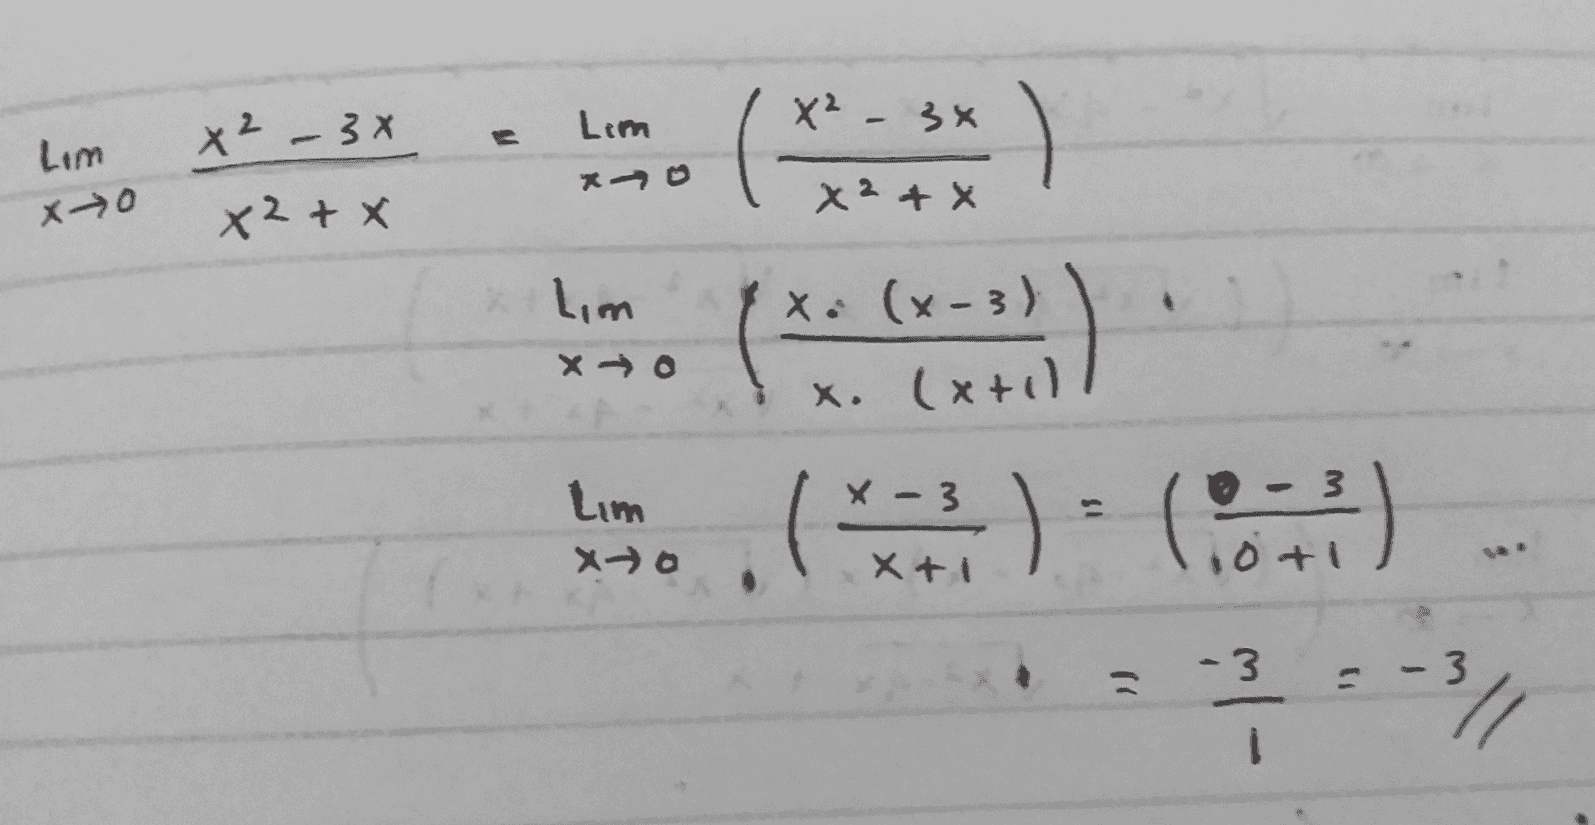 Lim x→0 (x² - 3x)/(x² + x) = Lim x→0 ((x² - 3x)/(x² + x))
Lim x→0 ((x. (x-3))/(x. (x+1)))
Lim x→0 ((x-3)/(x+1)) = ((0-3)/(0+1)) ...
= -3/1 = -3 //